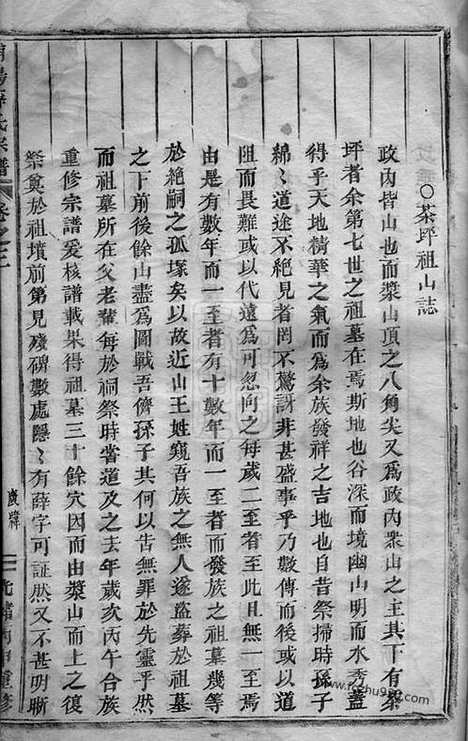 ○茶坪祖山誌
政內皆山也而槳山頂之八角尖又為政內眾山之主其下有槳
坪者余第七世之祖墓在焉斯地也谷深而境幽山明而水秀蓋
得乎天地精華之氣而為余族發祥之吉地也自昔祭掃時孫子
綿〻道途不絕見者罔不驚訝非甚盛事乎乃數傳而後或以道
而畏難或以代遠為可忽向之每歲二至者至此且無一至焉
由是有數年而一至者有十數年而一至者而發族之祖墓幾等
於絕嗣之孤塚矣以故近山王姓窺吾族之無人遂盜葬於祖墓
之下前後餘山盡為圖戰吾儕孫子其何以告無罪於先靈乎然
而祖墓所在父老輩每於祠祭時嘗道及之去年歲次丙午合族
重修宗譜爰核譜載果得祖墓三十餘穴因而由槳山而上之復
祭奠於祖墳前第見殘碑數處隱〻有薛字可証然又不甚明晰
薛氏宗譜 卷之二
光緒丙申重修